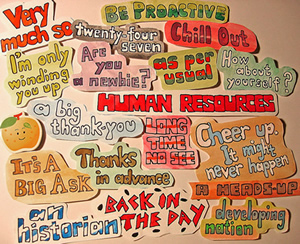 Very
much so
BE PROACTIVE
twenty four
seven
Chill Out
I'm only
winding you
up
Are
you
a newbie?
as per
usual
How
about
yourself?
HUMAN RESOURCES
a big
thank-you
LONG
TIME
NO SEE
Cheer up.
It might
never
happen
IT'S A
BIG ASK
Thanks
in advance
A HEADS-UP
an
historian
BACK IN
THE DAY
developing
nation